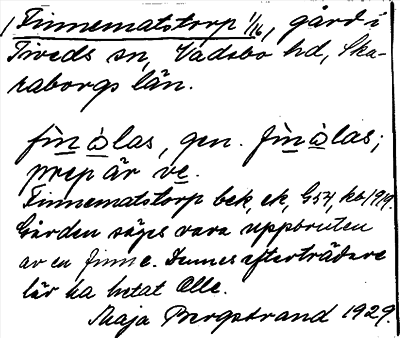 1 Finnematstorp 1/16, gård i
Tiveds sn, Vadsbo hd, Ska-
raborgs län.
fìn òlas, gen. fìn òlas;
prep är ve.
Finnematstorp bek, ek, G54, kb 1919.
Gården säges vara uppbruten
av en finne. Dennes efterträdare
lär ha hetat Olle.
Maja Bergstrand 1929.